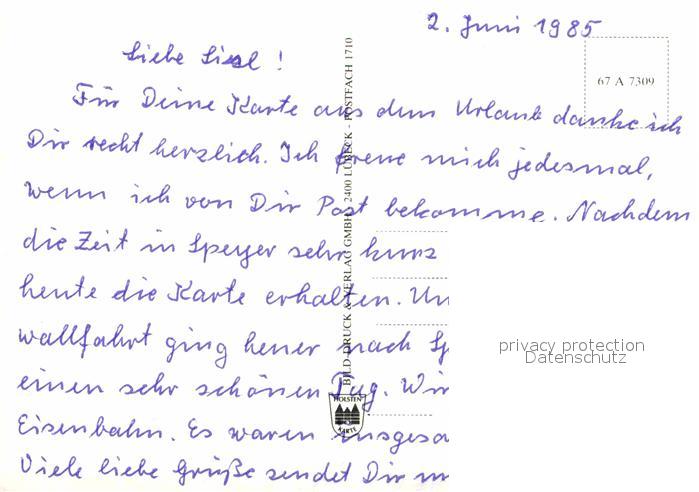 2. Juni 1985
Liebe Liesl!
67 A 7309
Für Deine Karte aus dem Urlaub danke ich
Dir recht herzlich. Ich freue mich jedesmal,
wenn ich von Dir Post bekomme. Nachdem
die Zeit in Speyer sehr kurz
heute die Karte erhalten. Un
wallfahrt ging heuer nach Sp
einen sehr schönen Tag. Wir
Eisenbahn. Es waren insgesa
Viele liebe Grüße sendet Dir
BILD-DRUCK & VERLAG GMBH · 2400 LÜBECK · POSTFACH 1710
HOLSTEN
KARTE
privacy protection
Datenschutz